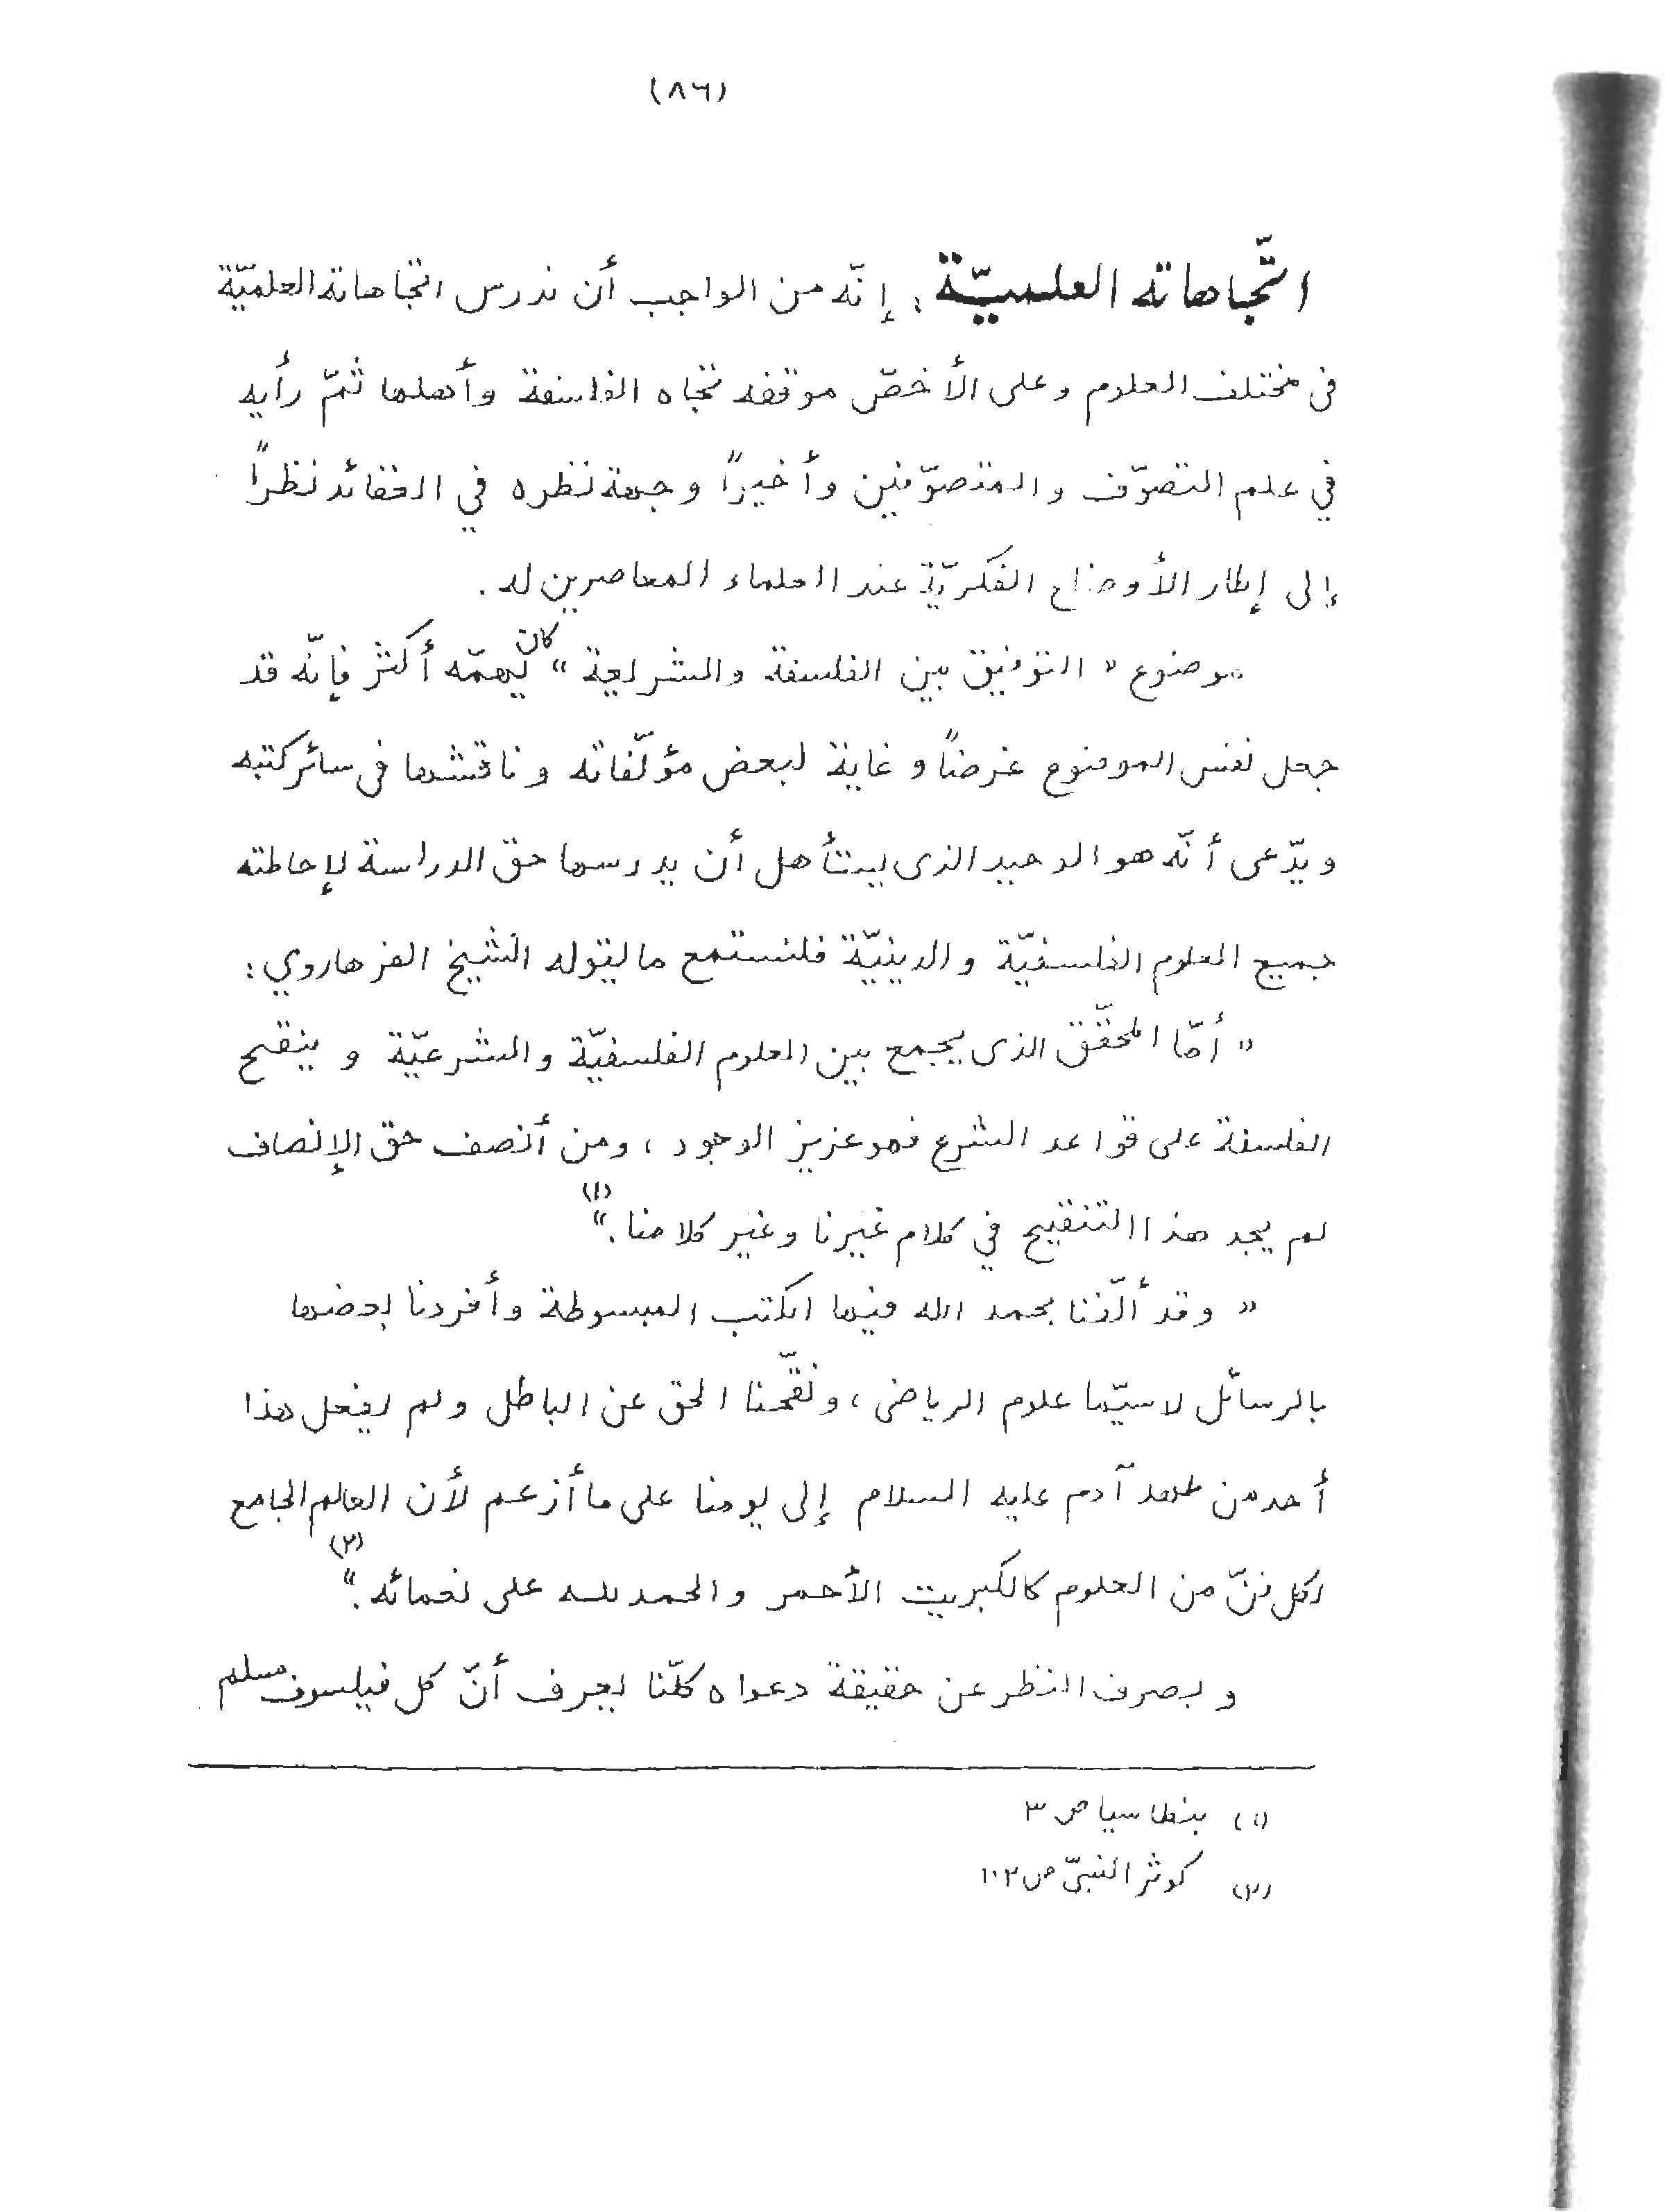 (٨٦)
اتّجاهاته العلميّة: إنّه من الواجب أن ندرس اتجاهاته العلميّة
فى مختلف العلوم وعلى الأخصّ موقفه تجاه الفلسفة وأهلها ثمّ رأيه
في علم التصوّف والمتصوّفين وأخيراً وجهة نظره في العقائد نظراً
إلى إطار الأوضاع الفكريّة عند العلماء المعاصرين له.
موضوع "التوفيق بين الفلسفة والشريعة" كان يهمّه أكثر فإنّه قد
جعل نفس الموضوع غرضاً وغاية لبعض مؤلّفاته وناقشها فى سائر كتبه
ويدّعى أنّه هو الوحيد الذى يستأهل أن يدرسها حق الدراسة لإحاطته
جميع العلوم الفلسفيّة والدينيّة فلنستمع ما يقوله الشيخ الفرهاروي:
"أمّا المحقّق الذى يجمع بين العلوم الفلسفيّة والشرعيّة و ينقح
الفلسفة على قواعد الشرع فهو عزيز الوجود، ومن أنصف حق الإنصاف
لم يجد هذا التنقيح في كلام غيرنا وغير كلامنا."(١)
"وقد ألّفنا بحمد الله فيها الكتب المبسوطة وأفردنا بعضها
بالرسائل لاسيّما علوم الرياضى، ونقّحنا الحق عن الباطل ولم يفعل هذا
أحد من عهد آدم عليه السلام إلى يومنا على ما أزعم لأن العالم الجامع
لكل فنّ من العلوم كالكبريت الأحمر والحمد لله على نعمائه."(٢)
و بصرف النظر عن حقيقة دعواه كلّنا يعرف أنّ كل فيلسوف مسلم
(١) بنطاسيا ص ٣
(٢) كوثر النبىّ ص ١٠٢